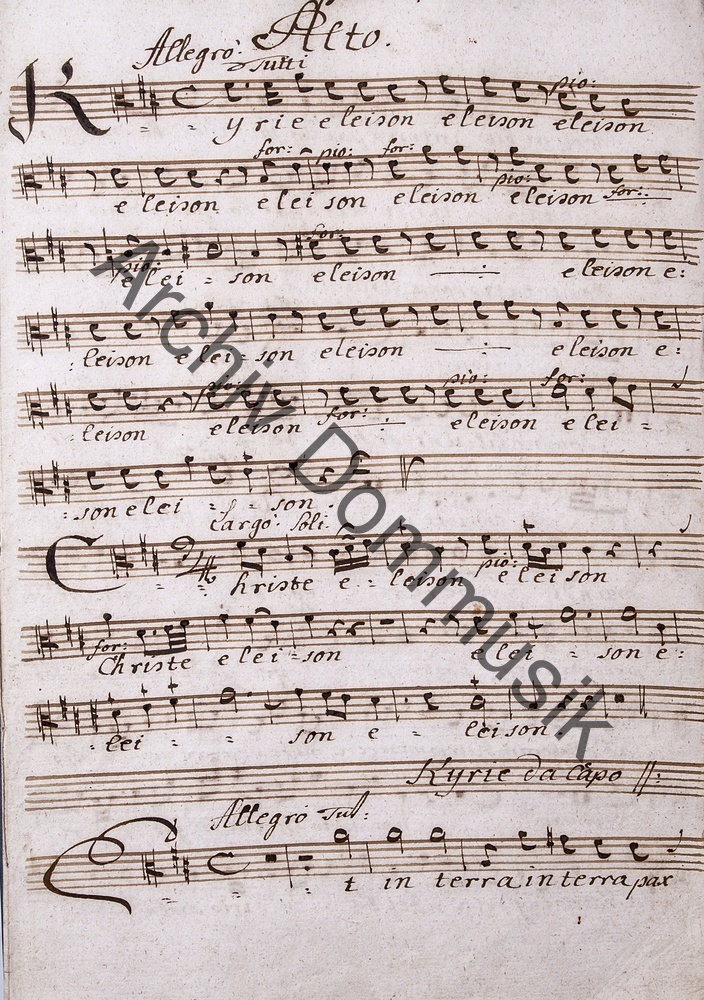 Alto.
Allegro: Tutti
pio:
Kyrie eleison eleison eleison
for: pio: for: pio: for:
eleison elei son eleison eleison
pio: for:
elei = son eleison eleison e:
:leison elei = son eleison eleison e:
pio: for: pio: for:
:leison eleison eleison elei =
:son elei = = son.
Largo: Soli
pio:
Christe e = leison elei son
for:
Christe elei = son elei = son e:
:lei = = son e = lei son
Kyrie da Capo
Allegro Tut:
Et in terra in terra pax
Archiv Dommusik